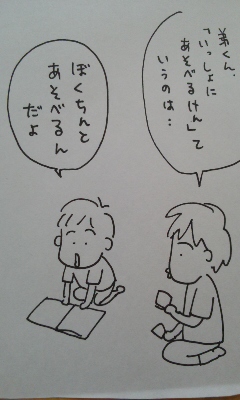 弟くん、
「いっしょに
あそべるけん」て
いうのは…
ぼくちんと
あそべるん
だよ